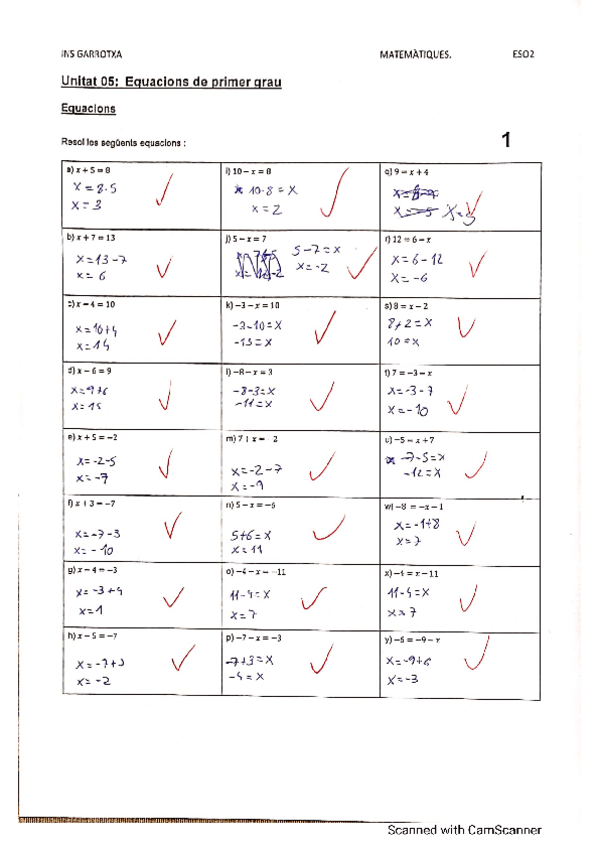 INS GARROTXA MATEMÀTIQUES. ESO2
Unitat 05: Equacions de primer grau
Equacions
Resol les següents equacions :
1
a) x + 5 = 8
x = 8-5
x = 3
i) 10 – x = 8
10-8 = x
x = 2
q) 9 = x + 4
x = 5
b) x + 7 = 13
x = 13-7
x = 6
j) 5 – x = 7
5-7 = x
x = -2
r) 12 = 6 – x
x = 6-12
x = -6
c) x – 4 = 10
x = 10+4
x = 14
k) –3 – x = 10
-3-10 = x
-13 = x
s) 8 = x – 2
8+2 = x
10 = x
d) x – 6 = 9
x = 9+6
x = 15
l) –8 – x = 3
-8-3 = x
-11 = x
t) 7 = –3 – x
x = -3-7
x = -10
e) x + 5 = –2
x = -2-5
x = -7
m) 7 + x = –2
x = -2-7
x = -9
u) –5 = x + 7
-7-5 = x
-12 = x
f) x + 3 = –7
x = -7-3
x = -10
n) 5 – x = –6
5+6 = x
x = 11
w) –8 = –x – 1
x = -1+8
x = 7
g) x – 4 = –3
x = -3+4
x = 1
o) –4 – x = –11
11-4 = x
x = 7
x) –4 = x – 11
11-4 = x
x = 7
h) x – 5 = –7
x = -2
p) –7 – x = –3
-7+3 = x
-4 = x
y) –6 = –9 – x
x = -9+6
x = -3
Scanned with CamScanner